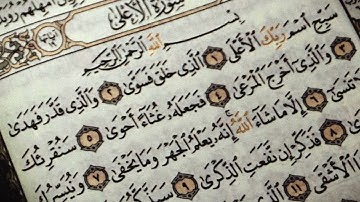 أمهلهم رويدا
سورة الأعلى
بِسْمِ اللَّهِ الرَّحْمَٰنِ الرَّحِيمِ
سَبِّحِ اسْمَ رَبِّكَ الْأَعْلَى ١ الَّذِي خَلَقَ فَسَوَّىٰ ٢ وَالَّذِي قَدَّرَ فَهَدَىٰ
٣ وَالَّذِي أَخْرَجَ الْمَرْعَىٰ ٤ فَجَعَلَهُ غُثَاءً أَحْوَىٰ ٥ سَنُقْرِئُكَ
تَنسَىٰ ٦ إِلَّا مَا شَاءَ اللَّهُ إِنَّهُ يَعْلَمُ الْجَهْرَ وَمَا يَخْفَىٰ ٧ وَنُيَسِّرُكَ
٨ فَذَكِّرْ إِن نَّفَعَتِ الذِّكْرَىٰ ٩ سَيَذَّكَّرُ
الْأَشْقَى ١١